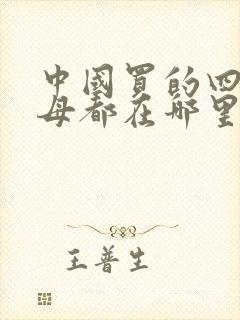 中國買的四
母都在哪里
王普生